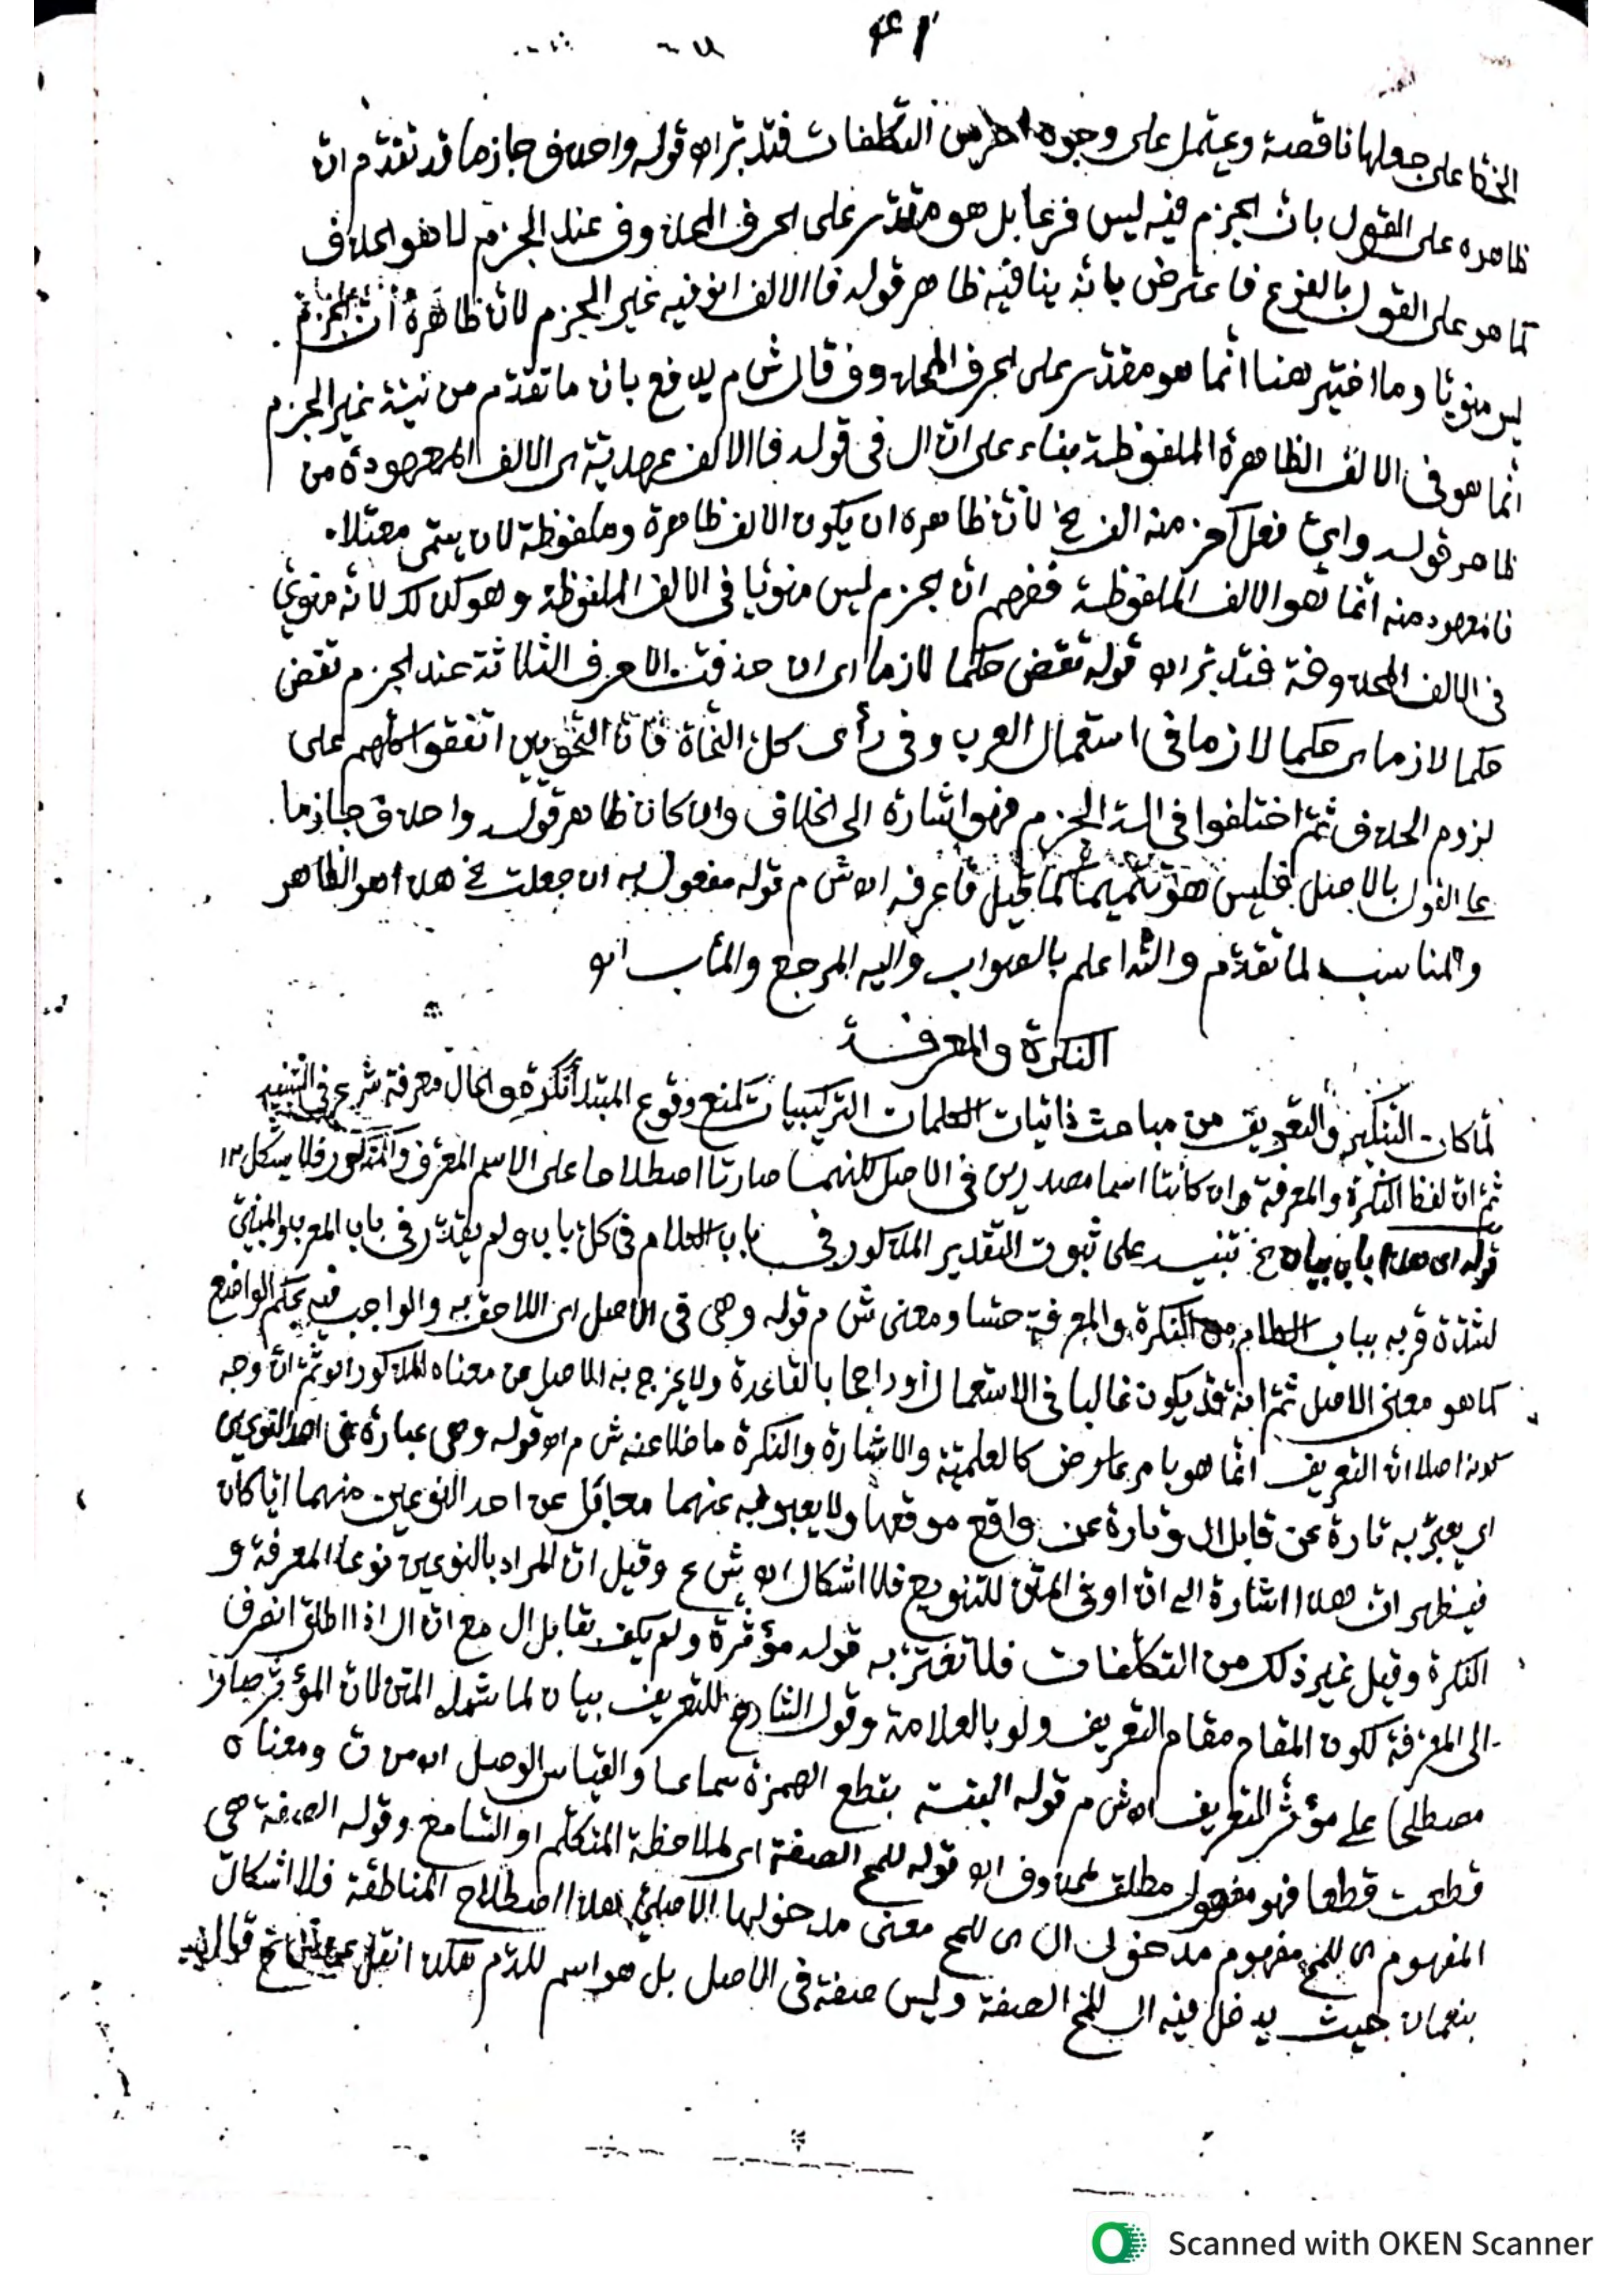 ٤١
على جعلها ناقصة ويحتمل على وجوه اخر من التكلفات فتدبر اه قوله واحذف جازما قد تقدم ان
ظاهره على القول بان الجزم فيه ليس فرعا بل هو مقدر على الحرف المحذوف عند الجزم لا هو الحذف
كما هو على القول بالفرع فاعترض بانه ينافيه ظاهر قوله فالالف انو فيه غير الجزم لان ظاهره ان الجزم
ليس منويا وما اختير هنا انما هو مقدر على الحرف المحذوف قال ش م يدفع بان ما تقدم من نية غير الجزم
انما هو في الالف الظاهرة الملفوظة بناء على ان ال في قوله فالالف عهدية اى الالف المعهودة من
ظاهر قوله واى فعل آخر منه الف الخ لان ظاهره ان يكون الالف ظاهرة وملفوظة لان يسمى معتلا
فالمعهود منه انما هو الالف الملفوظة ففهم ان الجزم ليس منويا في الالف الملفوظة وهو كذلك لانه منوي
في الالف المحذوفة فتدبر اه قوله تقض حكما لازما اى ان حذفت الاحرف الثلاثة عند الجزم تقض
حكما لازما اى حكما لازما في استعمال العرب وفي رأى كل النحاة فان النحويين اتفقوا كلهم على
لزوم الحذف ثم اختلفوا في الجزم فهو اشارة الى الخلاف وان كان ظاهر قوله واحذف جازما
على القول بالاصل فليس هو تتميما كما قيل فاعرفه اه ش م قوله مفعول به ان جعلت الخ هذا هو الظاهر
والمناسب لما تقدم والله اعلم بالصواب واليه المرجع والمآب اه
النكرة والمعرفة
لما كان التنكير والتعريف من مباحث ذاتيات الكلمات التركيبيات كمنع وقوع المبتدأ نكرة والحال معرفة شرع في
ثم ان لفظ النكرة والمعرفة وان كانتا اسما مصدرين في الاصل لكنهما صارتا اصطلاحا على الاسم المعرف والمنكور فلا يشكل اه
قوله اى هذا باب بيان الخ تنبيه على ثبوت التقدير المذكور في باب الكلام في كل باب ولم يقدر في باب المعرب والمبني
لشدة قربه بباب الكلام من النكرة والمعرفة حسا ومعنى ش م قوله وهى فى الاصل اى اللاحق به والواجب فيه بحكم الواضع
كما هو معنى الاصل ثم انه قد يكون غالبا في الاستعمال او راجحا بالقاعدة ولا يخرج به الاصل عن معناه المذكور اه ثم ان وجه
كونه اصلا ان التعريف انما هو بامر عارض كالعلمية والاشارة والنكرة ما خلا عنه ش م اه قوله وهى عبارة عن احد النوعين
اى يعبر به تارة عن قابل ال وتارة عن واقع موقعها ولا يعبر به عنهما معا بل عن احد النوعين منهما ايا كان
فيظهر ان هذا اشارة الى ان او في المتن للتنويع فلا اشكال اه ش ع وقيل ان المراد بالنوعين نوعا المعرفة و
النكرة وقيل غير ذلك من التكلفات فلا تغتر به قوله مؤثرة ولم يكف بقابل ال مع ان ال اذا اطلق انصرف
الى المعرفة لكون المقام مقام التعريف ولو بالعلامة وقول الشارح للتعريف بيان لما شمله المتن لان المؤثر صار
مصطلحا على مؤثر التعريف اه ش م قوله البتة بقطع الهمزة سماعا والقياس الوصل اه من ق ومعناه
قطعت قطعا فهو مفعول مطلق لمحذوف اه قوله للمح الصفة اى لملاحظة المتكلم او السامع وقوله الصفة هى
المفهوم اى للمح مفهوم مدخول ال اى للمح معنى مدخولها الاصلي هذا اصطلاح المناطقة فلا اشكال
بنعمان حيث يدخل فيه ال للمح الصفة وليس صفة في الاصل بل هو اسم للدم هكذا نقل
Scanned with OKEN Scanner